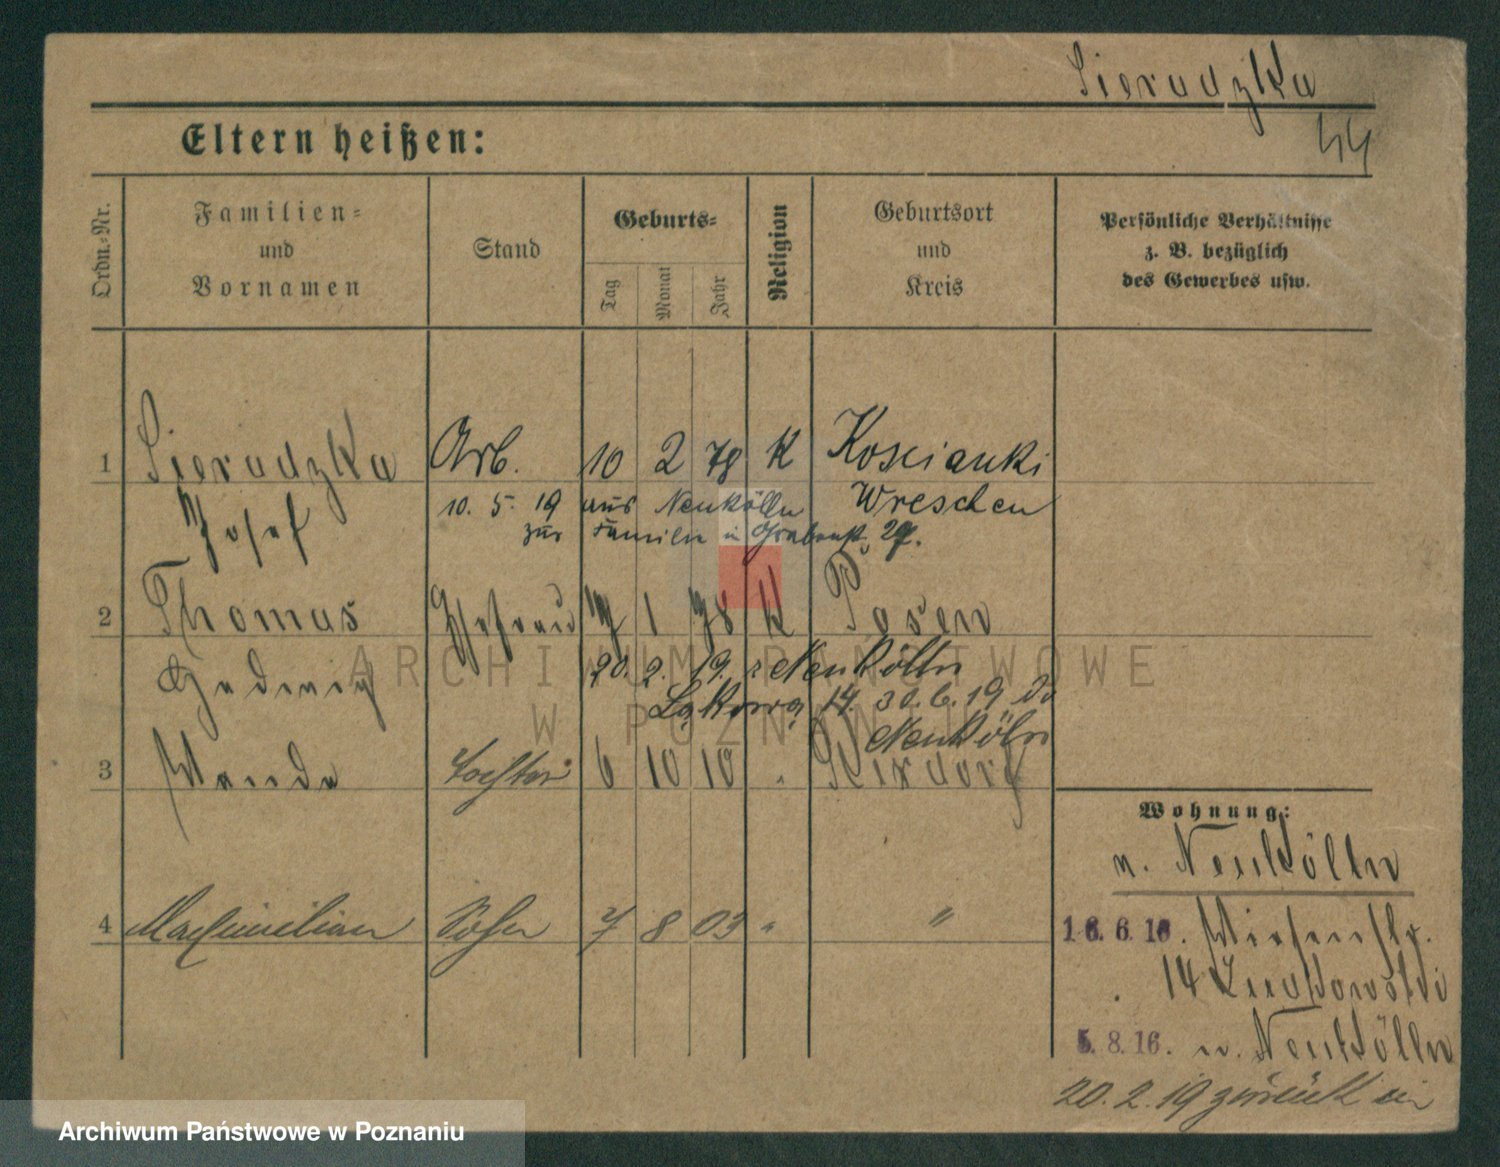 Sieradzka
44
Eltern heißen:
Ordn.-Nr.
Familien-
und
Vornamen
Stand
Geburts-
Tag
Monat
Jahr
Religion
Geburtsort
und
Kreis
Persönliche Verhältnisse
z. B. bezüglich
des Gewerbes usw.
1 Sieradzka Arb. 10 2 78 K Koscianki
Josef 10. 5. 19 aus Neukölln Wreschen
zur Familie in 29.
2 Thomas Ehefrau 1 78 K Posen
Hedwig 20. 2. 19. Neukölln
Łąkowa 14. 30. 6. 19
Neukölln
3 Wanda Tochter 6 10 10 " Rixdorf
Wohnung:
n. Neukölln
4 Maximilian Sohn 7 8 03 " "
6. 16. Wiesenstr.
14
5. 8. 16. n. Neukölln
20. 2. 19 zurück
ARCHIWUM PAŃSTWOWE
W POZNANIU
Archiwum Państwowe w Poznaniu